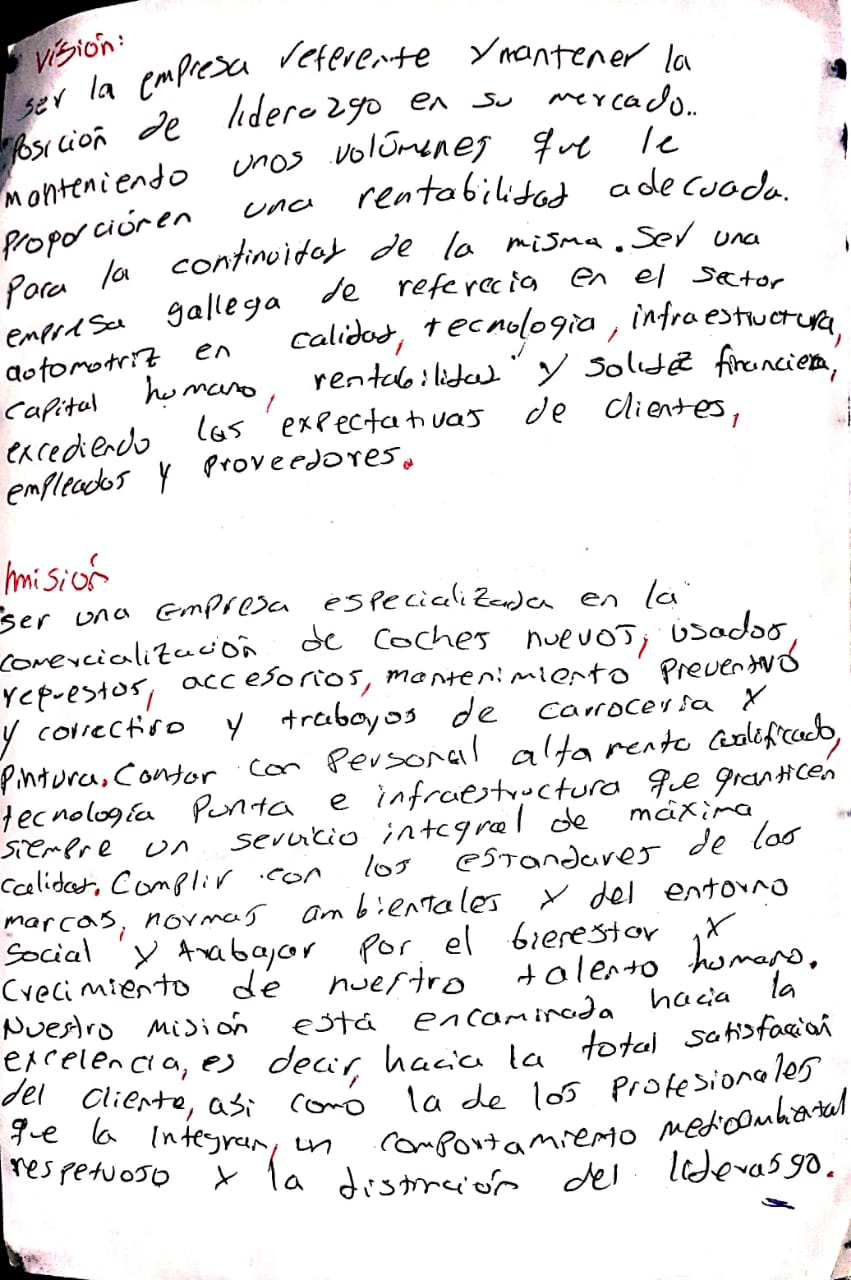 Visión:
ser la empresa referente y mantener la
posición de liderazgo en su mercado..
manteniendo unos volúmenes que le
proporciónen una rentabilidad adecuada.
Para la continuidad de la misma. Ser una
empresa gallega de referecia en el sector
automotriz en calidad, tecnologia, infraestructura,
capital humano, rentabilidad y solidez financiera,
excediendo las expectativas de clientes,
empleados y proveedores.
misión
ser una empresa especializada en la
comercialización de coches nuevos, usados,
repuestos, accesorios, mantenimiento preventivo
y correctivo y trabajos de carroceria y
pintura. Contar con personal altamente cualificado,
tecnología punta e infraestructura que granticen
siempre un servicio integral de máxima
calidad. Complir con los estandares de las
marcas, normas ambientales y del entorno
social y trabajar por el bienestar y
crecimiento de nuestro talento humano.
Nuestro misión está encaminada hacia la
excelencia, es decir, hacia la total satisfacion
del cliente, asi como la de los profesionales
que la integran, un comportamiento medioambiental
respetuoso y la distinción del liderasgo.